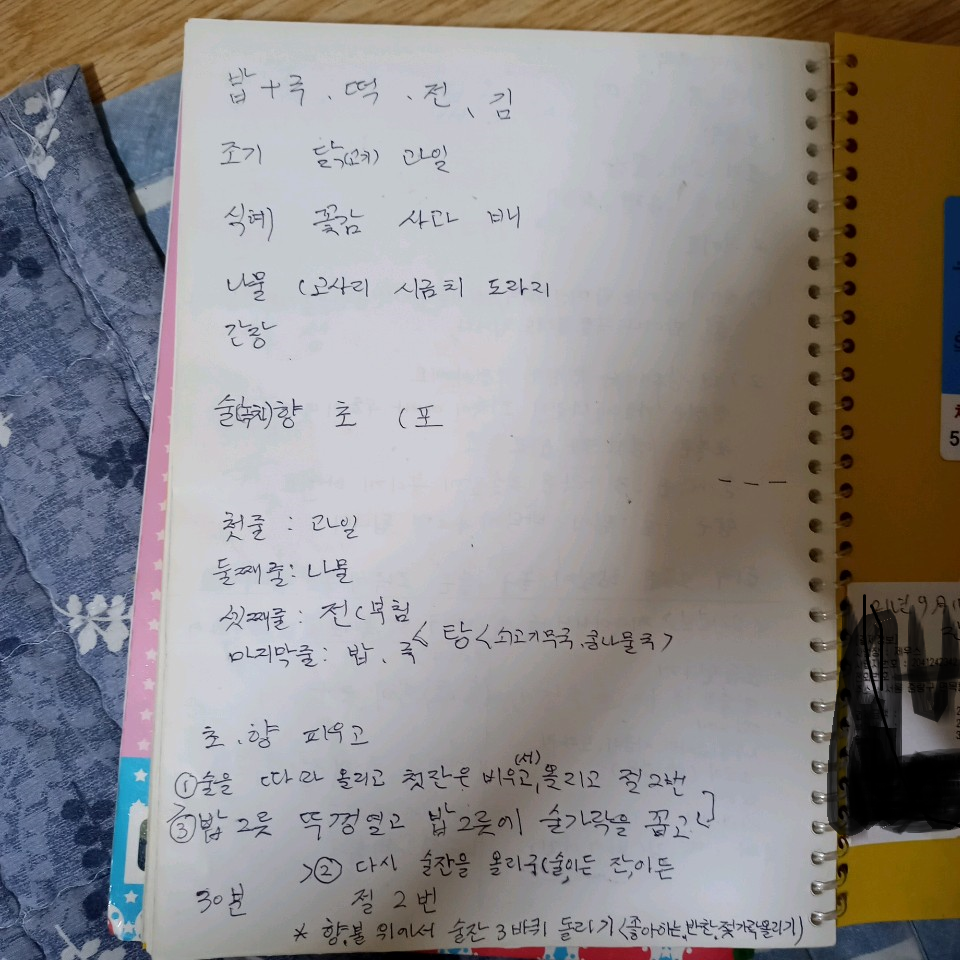 밥+국、떡、전、김
조기 닭(꼬치) 과일
식혜 꽃감 사과 배
나물 (고사리 시금치 도라지
간장
술(녹차)향 초 (포
첫줄 : 과일
둘째줄 : 나물
셋째줄 : 전(부침
마지막줄 : 밥、국 < 탕 <쇠고기무국、콩나물국>
초、향 피우고
① 술을 따라 올리고 첫잔은 비우고(서), 올리고 절 2번
③ 밥그릇 뚜껑열고 밥그릇에 숟가락을 꼽고
② 다시 술잔을 올리고(술이든 잔이든
30분 절 2번
* 향불 위에서 술잔 3바퀴 돌리기 <좋아하는 반찬, 젓가락올리기>